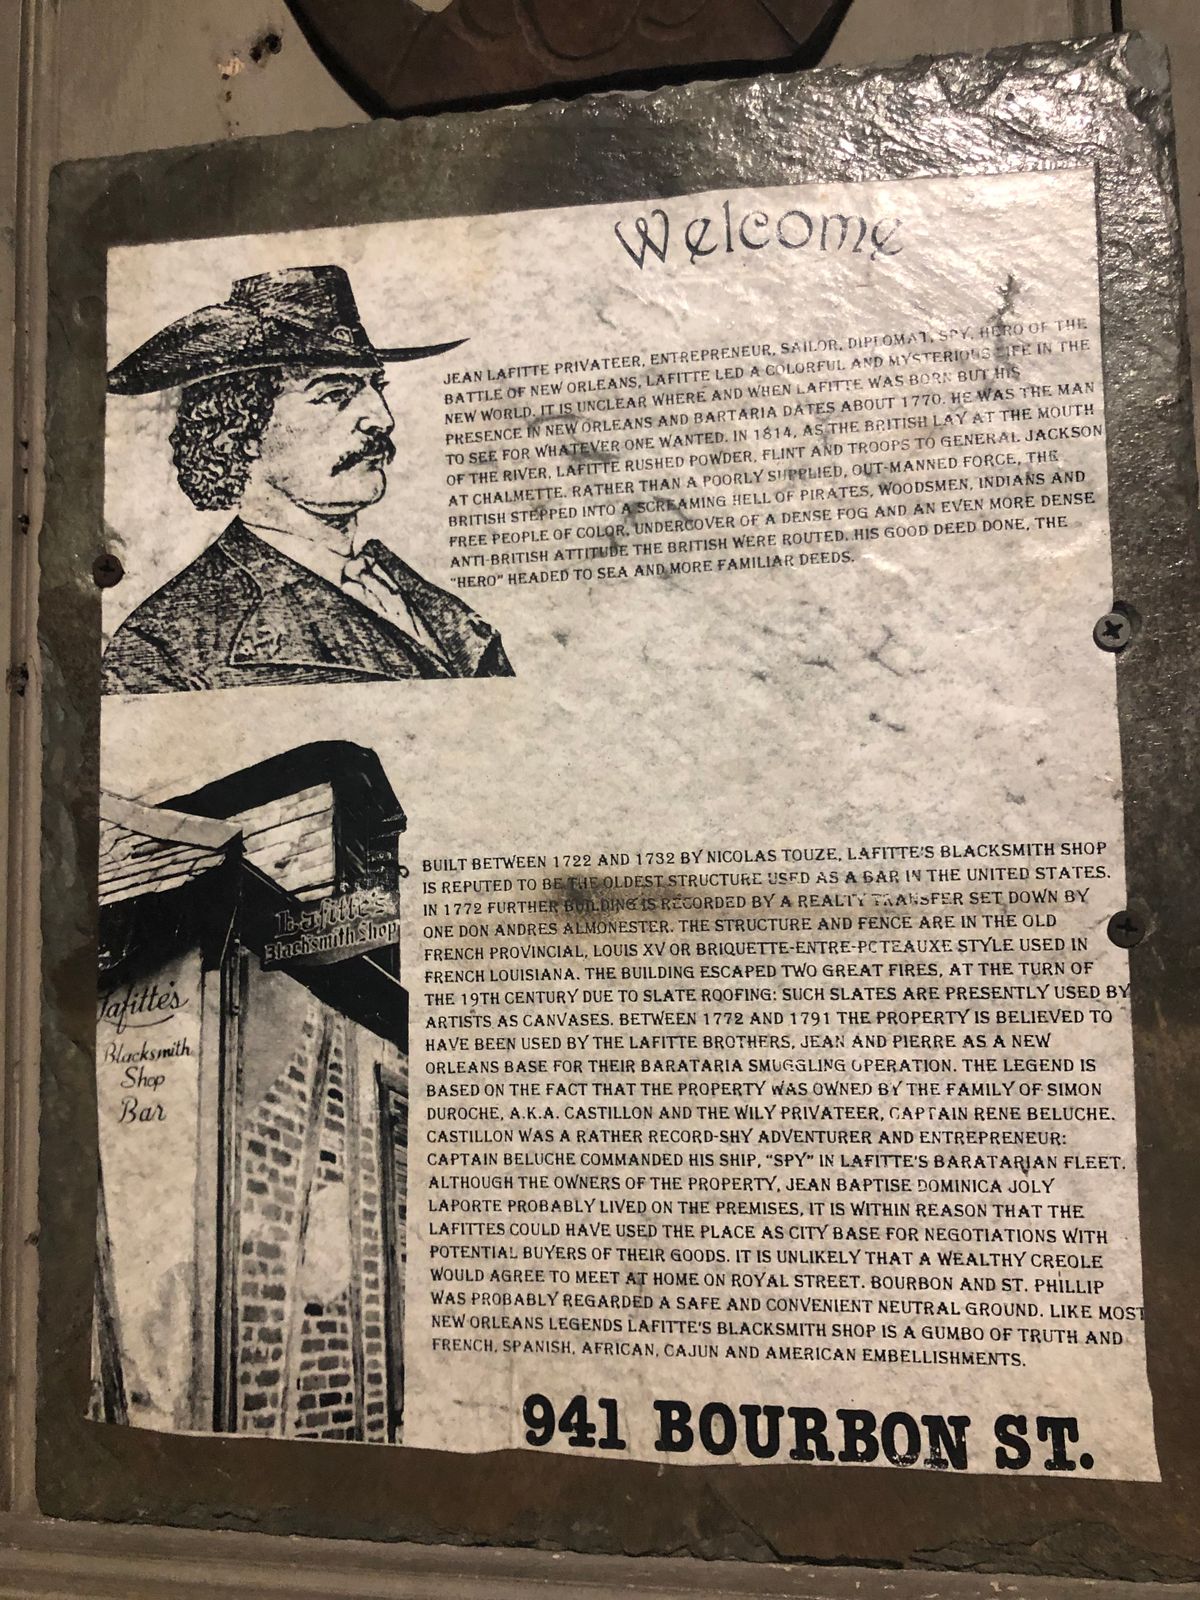 Welcome
JEAN LAFITTE PRIVATEER, ENTREPRENEUR, SAILOR, DIPLOMAT, SPY, HERO OF THE
BATTLE OF NEW ORLEANS, LAFITTE LED A COLORFUL AND MYSTERIOUS LIFE IN THE
NEW WORLD. IT IS UNCLEAR WHERE AND WHEN LAFITTE WAS BORN BUT HIS
PRESENCE IN NEW ORLEANS AND BARTARIA DATES ABOUT 1770. HE WAS THE MAN
TO SEE FOR WHATEVER ONE WANTED. IN 1814, AS THE BRITISH LAY AT THE MOUTH
OF THE RIVER, LAFITTE RUSHED POWDER, FLINT AND TROOPS TO GENERAL JACKSON
AT CHALMETTE. RATHER THAN A POORLY SUPPLIED, OUT-MANNED FORCE, THE
BRITISH STEPPED INTO A SCREAMING HELL OF PIRATES, WOODSMEN, INDIANS AND
FREE PEOPLE OF COLOR, UNDERCOVER OF A DENSE FOG AND AN EVEN MORE DENSE
ANTI-BRITISH ATTITUDE THE BRITISH WERE ROUTED. HIS GOOD DEED DONE, THE
"HERO" HEADED TO SEA AND MORE FAMILIAR DEEDS.
Lafitte's
Blacksmith Shop
Lafitte's
Blacksmith
Shop
Bar
BUILT BETWEEN 1722 AND 1732 BY NICOLAS TOUZE, LAFITTE'S BLACKSMITH SHOP
IS REPUTED TO BE THE OLDEST STRUCTURE USED AS A BAR IN THE UNITED STATES.
IN 1772 FURTHER BUILDING IS RECORDED BY A REALTY TRANSFER SET DOWN BY
ONE DON ANDRES ALMONESTER. THE STRUCTURE AND FENCE ARE IN THE OLD
FRENCH PROVINCIAL, LOUIS XV OR BRIQUETTE-ENTRE-POTEAUXE STYLE USED IN
FRENCH LOUISIANA. THE BUILDING ESCAPED TWO GREAT FIRES, AT THE TURN OF
THE 19TH CENTURY DUE TO SLATE ROOFING: SUCH SLATES ARE PRESENTLY USED BY
ARTISTS AS CANVASES. BETWEEN 1772 AND 1791 THE PROPERTY IS BELIEVED TO
HAVE BEEN USED BY THE LAFITTE BROTHERS, JEAN AND PIERRE AS A NEW
ORLEANS BASE FOR THEIR BARATARIA SMUGGLING OPERATION. THE LEGEND IS
BASED ON THE FACT THAT THE PROPERTY WAS OWNED BY THE FAMILY OF SIMON
DUROCHE, A.K.A. CASTILLON AND THE WILY PRIVATEER, CAPTAIN RENE BELUCHE.
CASTILLON WAS A RATHER RECORD-SHY ADVENTURER AND ENTREPRENEUR:
CAPTAIN BELUCHE COMMANDED HIS SHIP, "SPY" IN LAFITTE'S BARATARIAN FLEET.
ALTHOUGH THE OWNERS OF THE PROPERTY, JEAN BAPTISE DOMINICA JOLY
LAPORTE PROBABLY LIVED ON THE PREMISES, IT IS WITHIN REASON THAT THE
LAFITTES COULD HAVE USED THE PLACE AS CITY BASE FOR NEGOTIATIONS WITH
POTENTIAL BUYERS OF THEIR GOODS. IT IS UNLIKELY THAT A WEALTHY CREOLE
WOULD AGREE TO MEET AT HOME ON ROYAL STREET. BOURBON AND ST. PHILLIP
WAS PROBABLY REGARDED A SAFE AND CONVENIENT NEUTRAL GROUND. LIKE MOST
NEW ORLEANS LEGENDS LAFITTE'S BLACKSMITH SHOP IS A GUMBO OF TRUTH AND
FRENCH, SPANISH, AFRICAN, CAJUN AND AMERICAN EMBELLISHMENTS.
941 BOURBON ST.